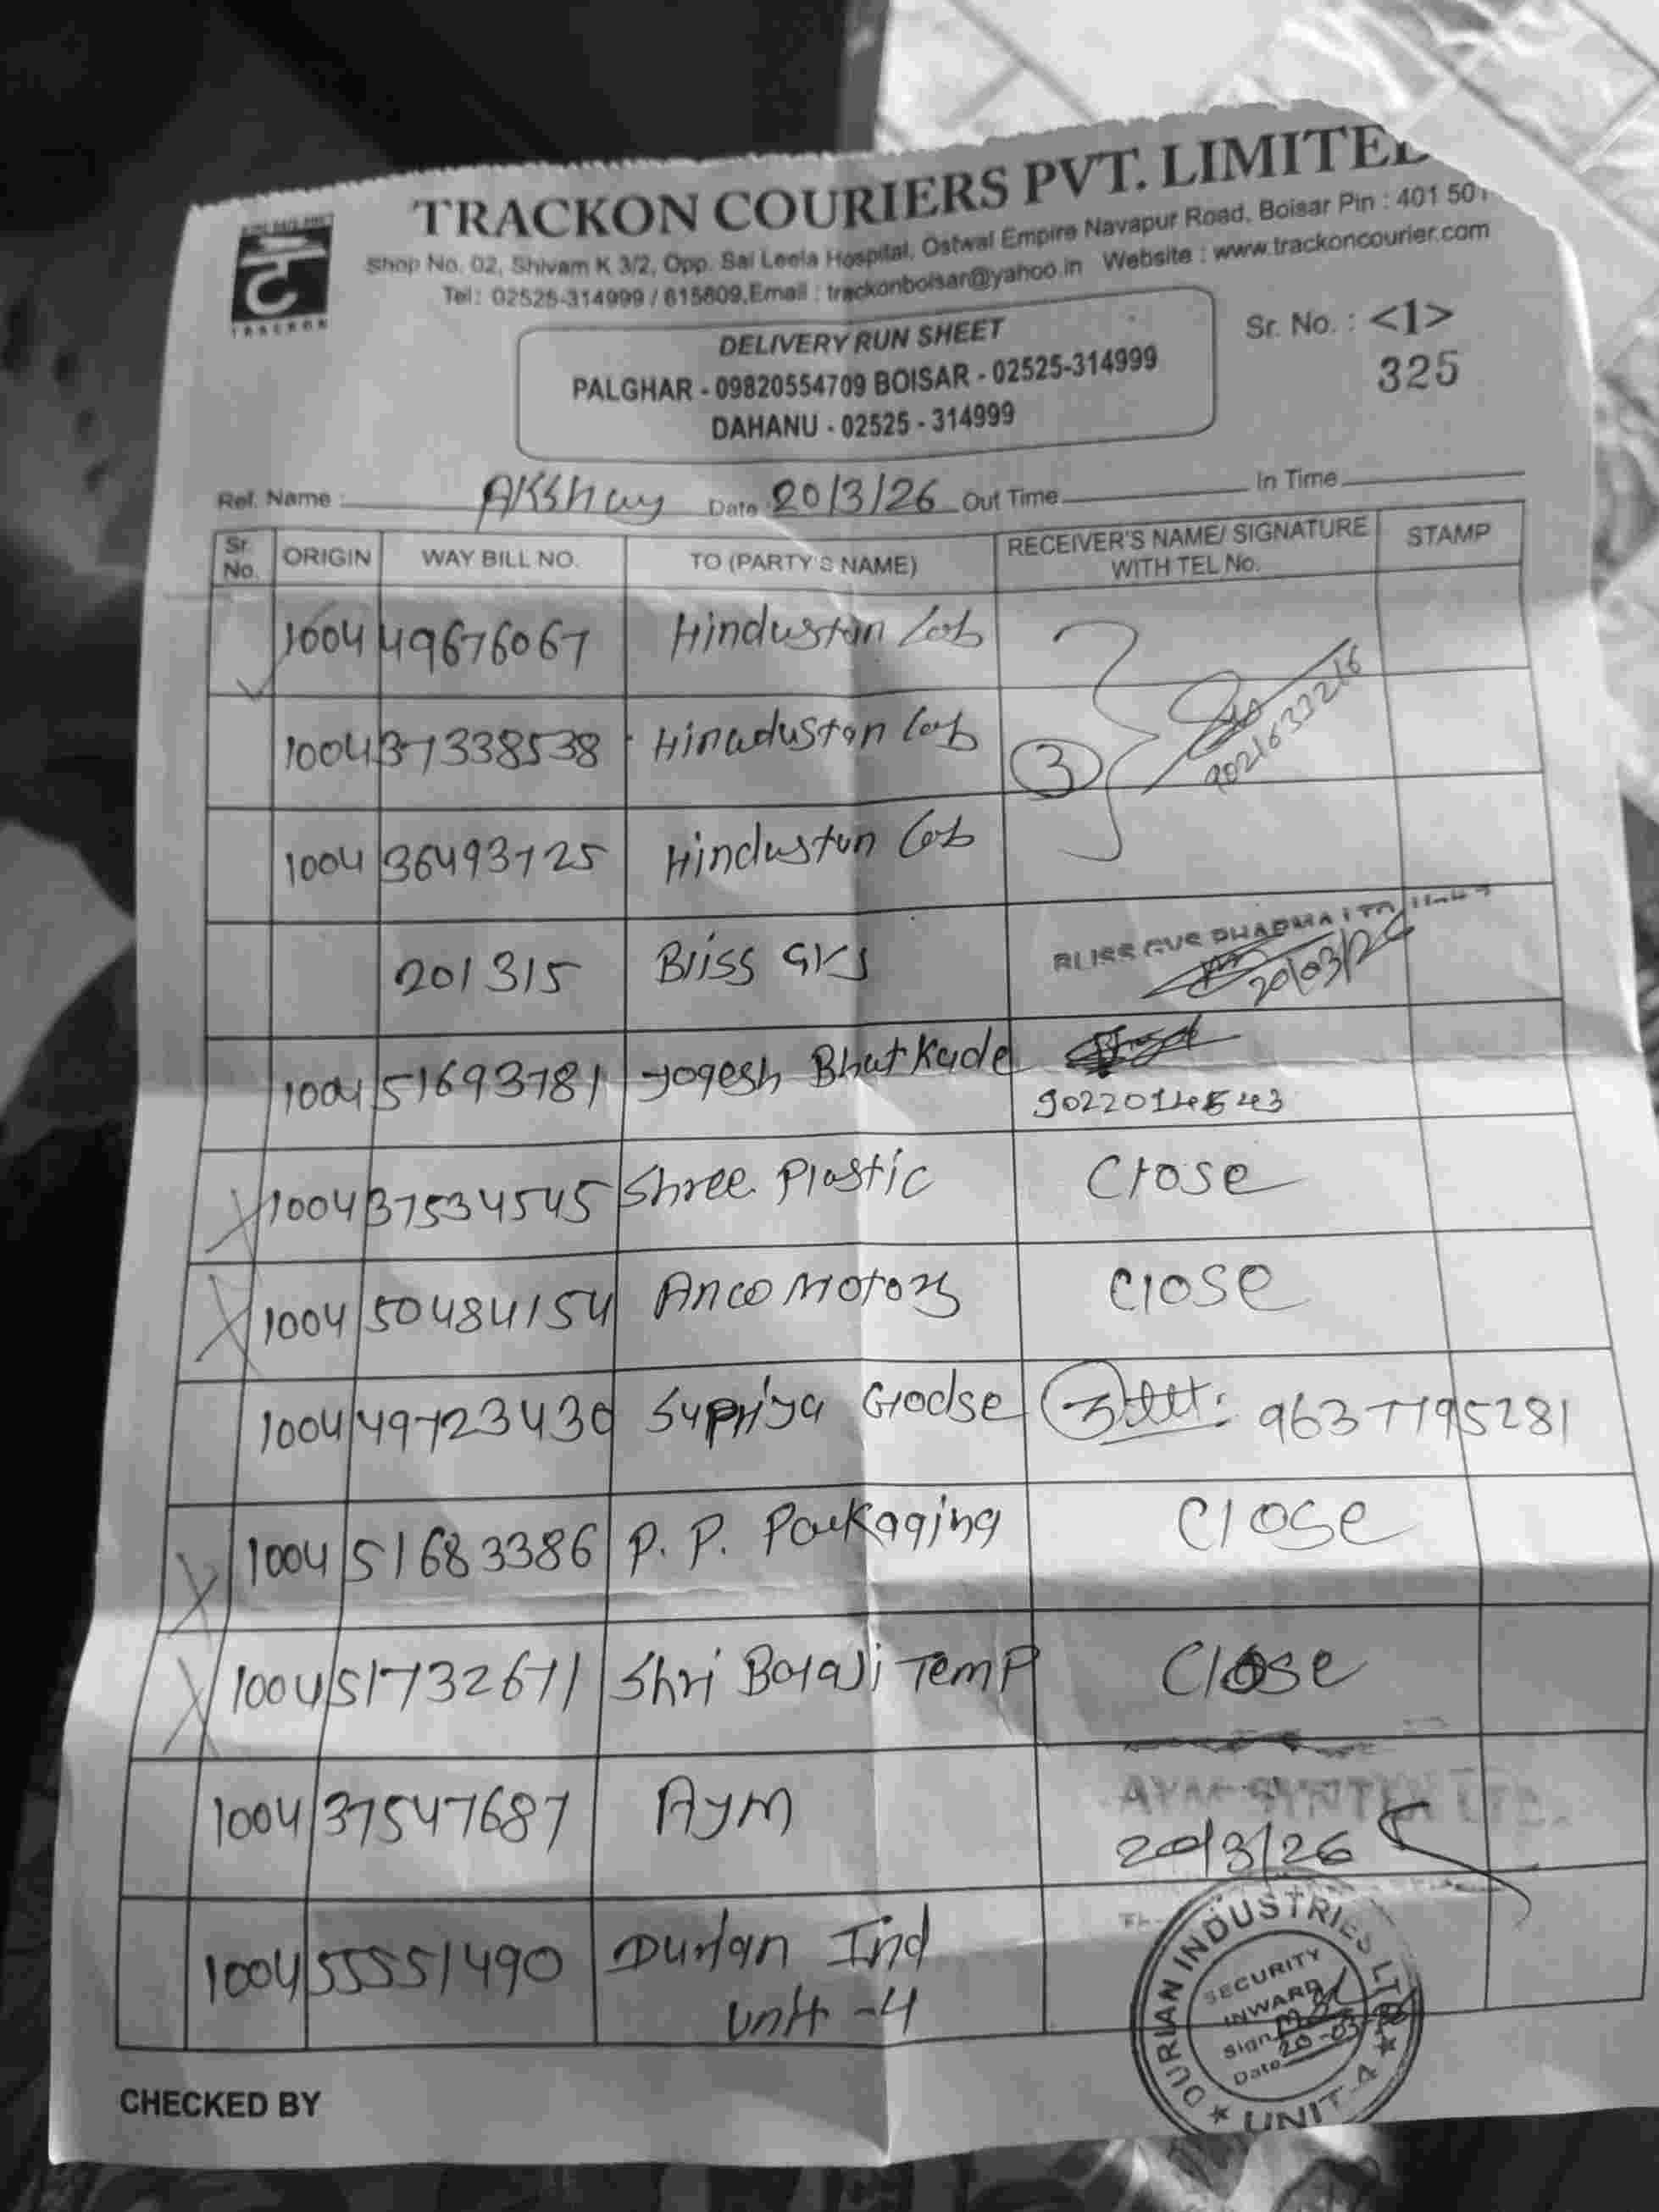 TRACKON COURIERS PVT. LIMITED
Shop No. 02, Shivam K 3/2, Opp. Sai Leela Hospital, Ostwal Empire Navapur Road, Boisar Pin : 401 501
Tel: 02525-314999 / 615809, Email : trackonboisar@yahoo.in Website : www.trackoncourier.com
TRACKON
DELIVERY RUN SHEET
PALGHAR - 09820554709 BOISAR - 02525-314999
DAHANU - 02525 - 314999
Sr. No. : <1>
325
Rel. Name : Akshay Date 20/3/26 Out Time In Time
Sr. No. ORIGIN WAY BILL NO. TO (PARTY'S NAME) RECEIVER'S NAME/ SIGNATURE WITH TEL No. STAMP
1004 49676067 Hindustan Lab
1004 37338538 Hinadustan Lab 3
1004 36493725 Hindustan Lab
201315 Bliss GVS BLISS GVS PHARMA LTD 20/03/26
1004 51693781 Yogesh Bhatkade 9022014543
1004 37534545 Shree Plastic Close
1004 50484154 Anco Motors Close
1004 49723430 Supriya Godse 9637795281
1004 51683386 P. P. Packaging Close
1004 51732671 Shri Balaji Temp Close
1004 37547687 Aym AYM SYNTEX LTD.
20/3/26
1004 55551490 Durian Ind
Unit -4
DURIAN INDUSTRIES LTD
SECURITY
INWARD
Sign
Date 20-03-26
★ UNIT 4 ★
CHECKED BY